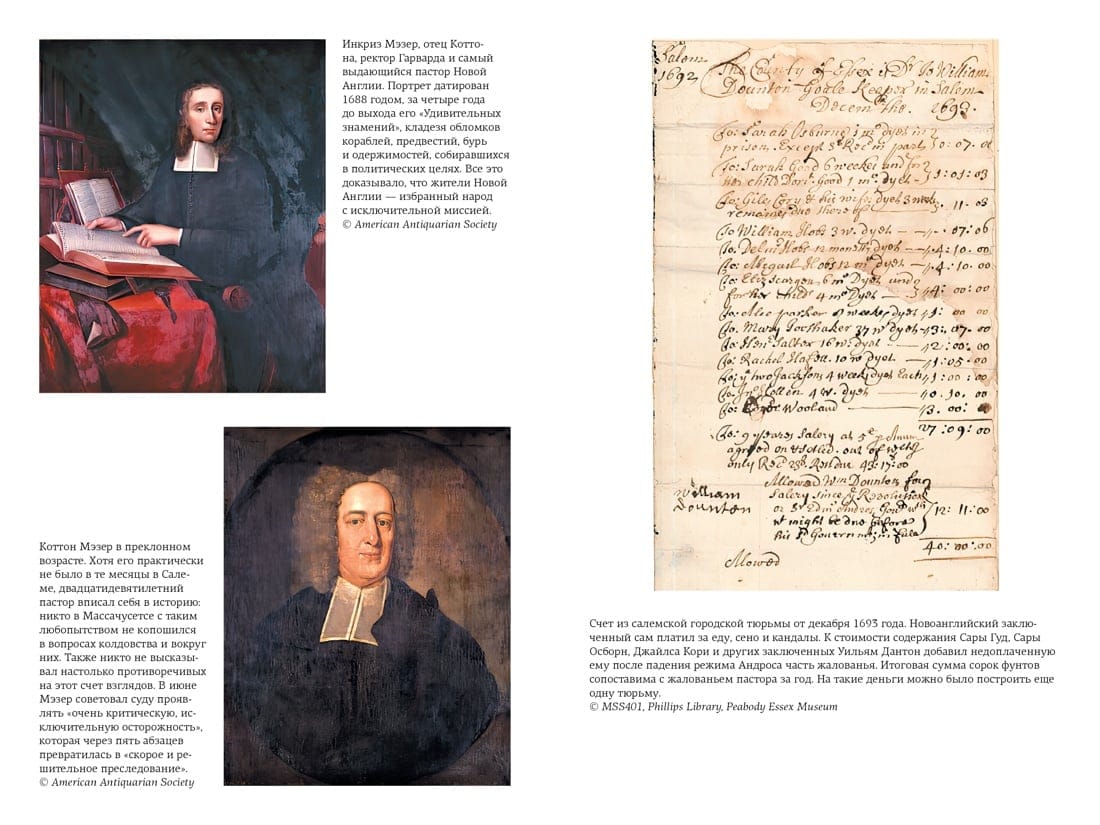 Инкриз Мэзер, отец Котто-
на, ректор Гарварда и самый
выдающийся пастор Новой
Англии. Портрет датирован
1688 годом, за четыре года
до выхода его «Удивительных
знамений», кладезя обломков
кораблей, предвестий, бурь
и одержимостей, собиравшихся
в политических целях. Все это
доказывало, что жители Новой
Англии — избранный народ
с исключительной миссией.
© American Antiquarian Society
Коттон Мэзер в преклонном
возрасте. Хотя его практически
не было в те месяцы в Сале-
ме, двадцатидевятилетний
пастор вписал себя в историю:
никто в Массачусетсе с таким
любопытством не копошился
в вопросах колдовства и вокруг
них. Также никто не высказы-
вал настолько противоречивых
на этот счет взглядов. В июне
Мэзер советовал суду прояв-
лять «очень критическую, ис-
ключительную осторожность»,
которая через пять абзацев
превратилась в «скорое и ре-
шительное преследование».
© American Antiquarian Society
Salem
1692
The County of Essex is Dr To William
Dounton Goale Keaper in Salem
Decem the 1693.
To: Sarah Osburne
prison. Except
To: Sarah Good 6 weekes and for
her child Good 1 mo dyet 1:01:03
To: Giles Cory & his wife dyet 3 weeks
11.08
To William Hobs 3 w. dyet 07:06
To. Hobs 12 months dyet 4:10.00
To: Abigail Hobs 12 m dyet 4:10.00
6 mo Dyet and
for her child 4 mo Dyet 4: 00:00
To: parker 8 weekes dyet 1: 00 00
To. Mary 37 w dyet 3: 07. 00
Salter 16 w. dyet 2: 00. 00
To: Rachel 10 w dyet 1:05:00
To: ye two Jacksons 4 weeks dyet Each 1:00:00
4 w. dyet 0.10.00
To: Wooland 3.00:
27:09:00
To: 9 yeares Salery at 5 p Anum
agreed on
only
Allowed Wm Dounton for
Salery since ye
or Sr Edm Gour
it might be due before 12: 11:00
his
William
Dounton
40:00:00
Allowed
Счет из салемской городской тюрьмы от декабря 1693 года. Новоанглийский заклю-
ченный сам платил за еду, сено и кандалы. К стоимости содержания Сары Гуд, Сары
Осборн, Джайлса Кори и других заключенных Уильям Дантон добавил недоплаченную
ему после падения режима Андроса часть жалованья. Итоговая сумма сорок фунтов
сопоставима с жалованьем пастора за год. На такие деньги можно было построить еще
одну тюрьму.
© MSS401, Phillips Library, Peabody Essex Museum